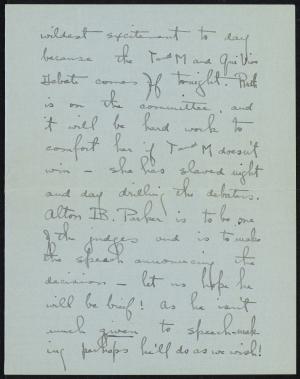 wildest excitement to day
because the T and M and Qui Vive
Debate comes off tonight. Ruth
is on the committee, and
it will be hard work to
comfort her if T and M doesn't
win – she has slaved night
and day drilling the debaters.
Alton B. Parker is to be one
of the judges and is to make
the speech announcing the
decision – let us hope he
will be brief! As he isn't
much given to speech-mak
ing perhaps he'll do as we wish!